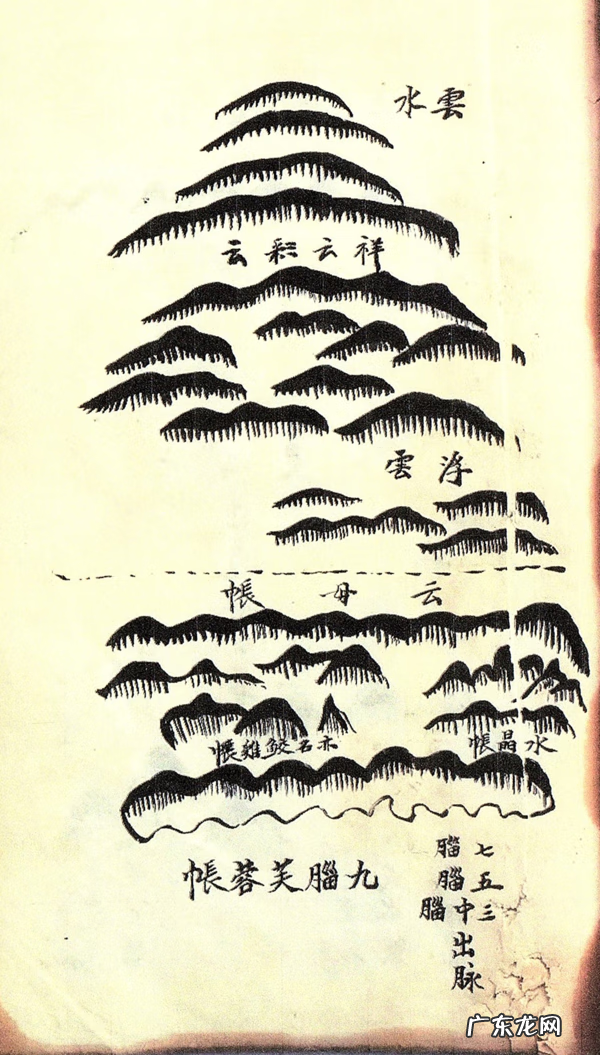 雲水
祥云彩云
浮雲
云母帳
水晶帳
亦名鮫雞帳
九腦芙蓉帳
七腦
五腦
三中腦
出
脉
广东龙网